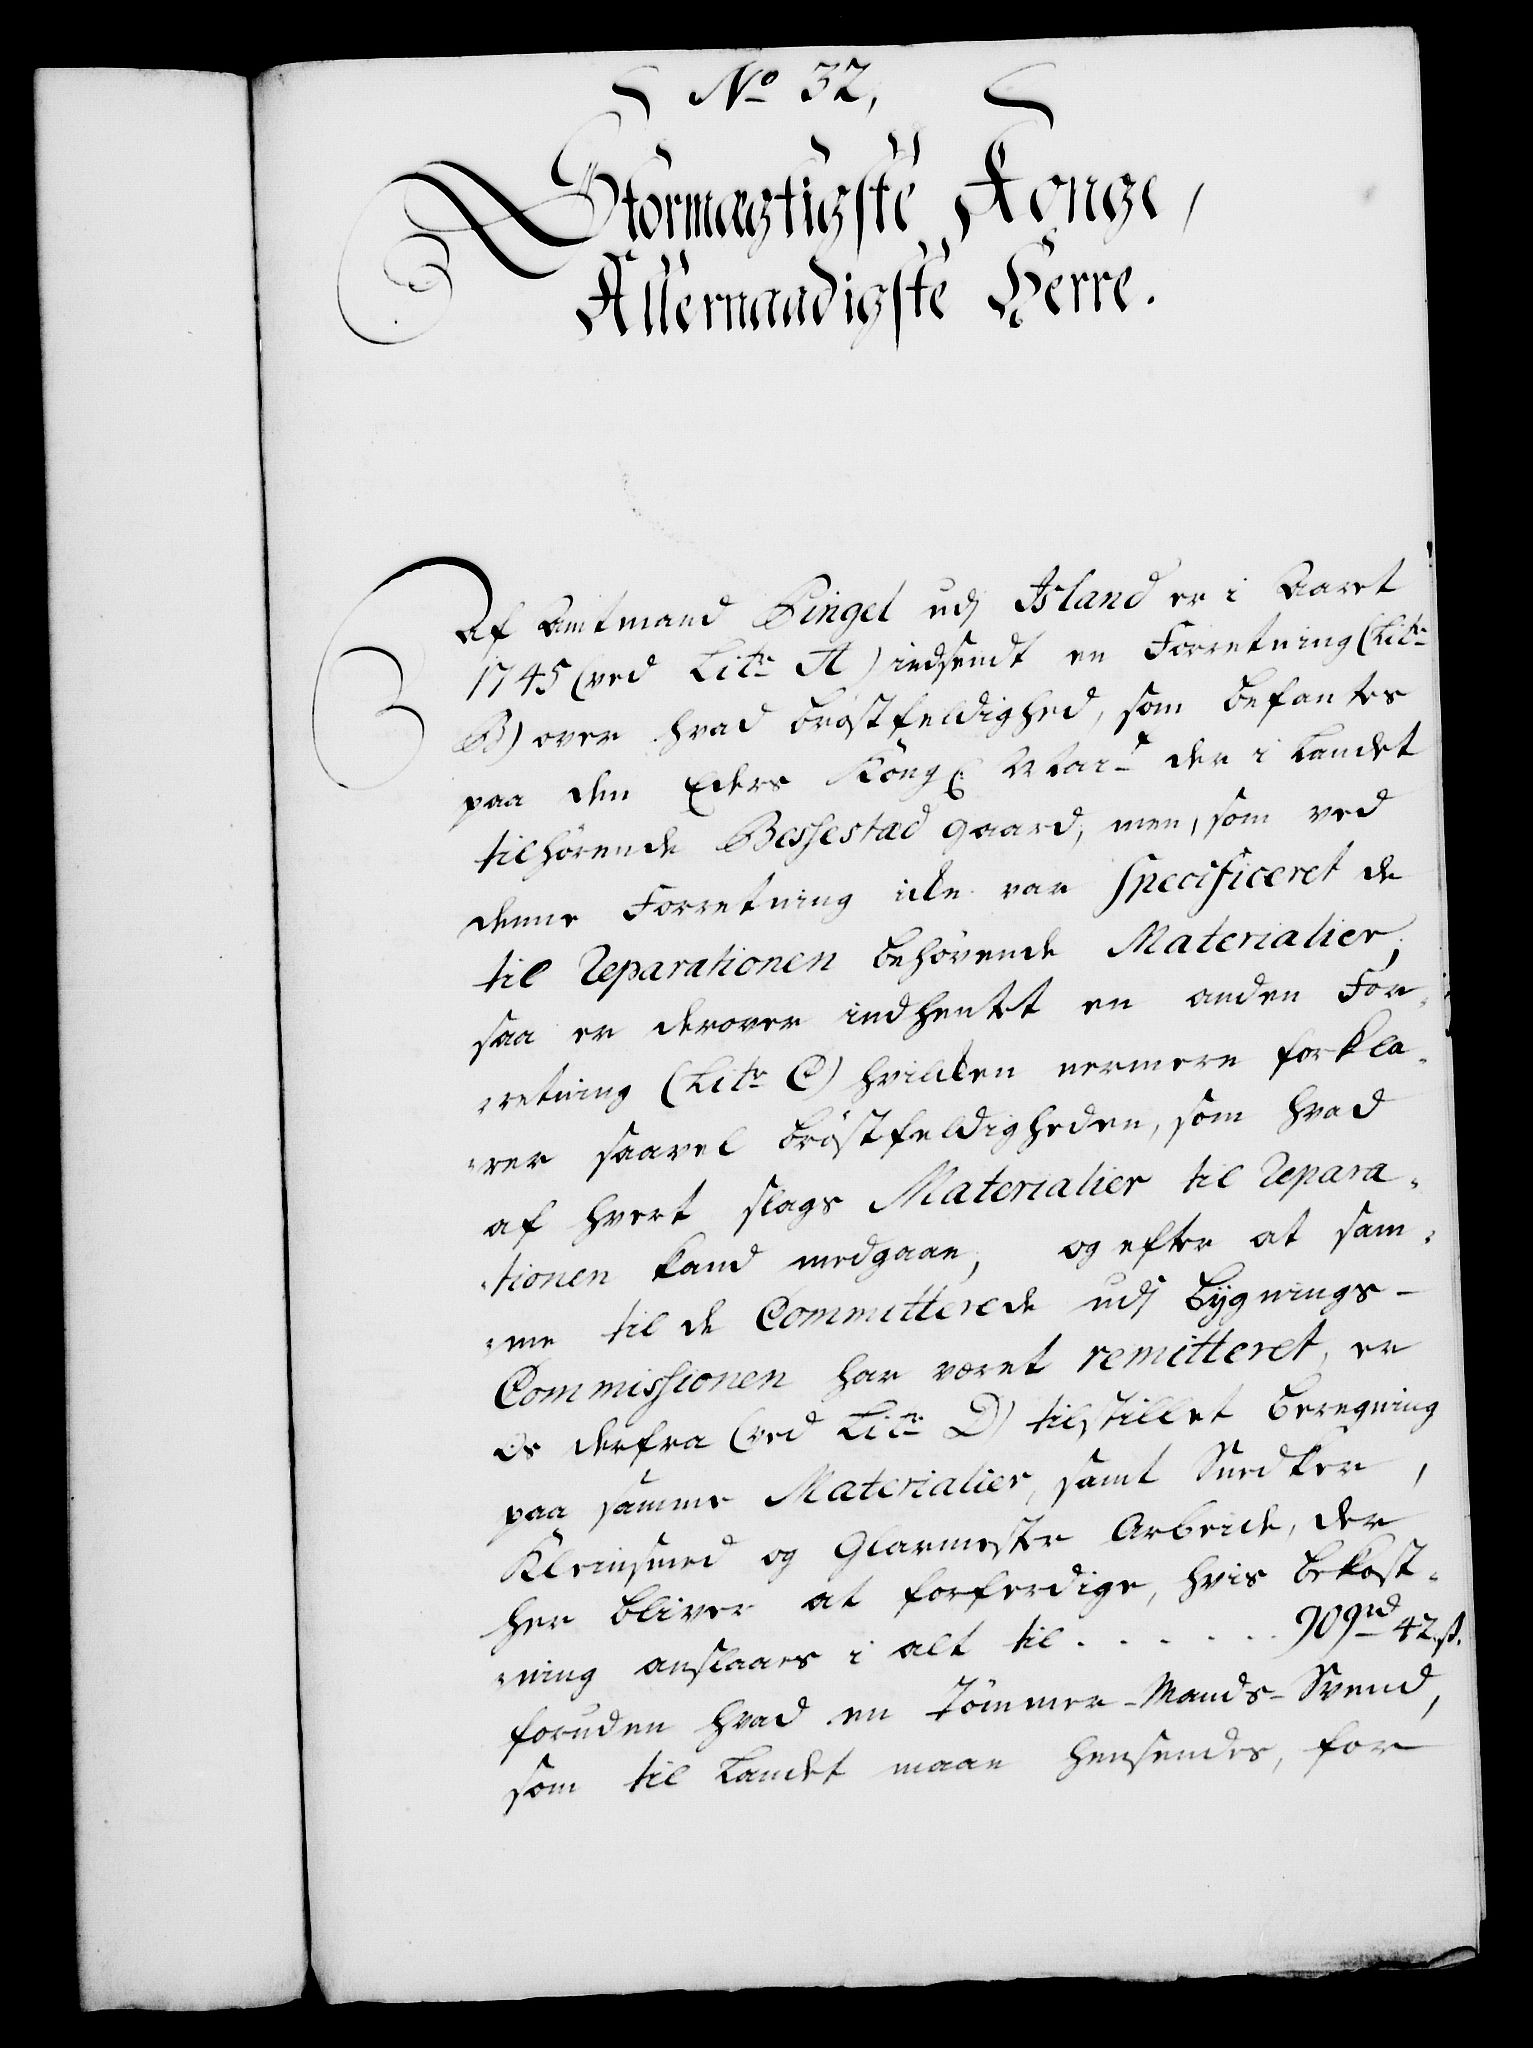 No 32,
Stormægtigste Konge,
Allernaadigste Herre.
Af Amtmand Pingel udj Island er i Aaret
1745 (ved Litr A) indsendt en Forretning (Litr
B) over hvad Bröstfeldighed, som befantes
paa den Eders Kongl: Mai-t der i Landet
tilhörende Bessestad gaard; men, som ved
denne Forretning icke var specificeret de
til Reparationen behövende Materialier;
saa er derover indhentet en anden For-
retning (Litr C) hvilken nermere forkla-
rer saavel Bröstfeldigheden, som hvad
af hvert slags Materialier til Repara-
tionen kand medgaae; og efter at sam-
me til de Committerede udj Bygnings-
Commissionen har været remitteret, er
Os derfra (ved Litr D) tilstillet Beregning
paa samme Materialier, samt Snedker,
Kleinsmed og Glarmester Arbeide, der
her bliver at forferdige, hvis bekost-
ning anslaaes i alt til . . . . . . 909rd 42 s.
foruden hvad en Tömmer-Mands-Svend,
som til Landet maae hensendes, for